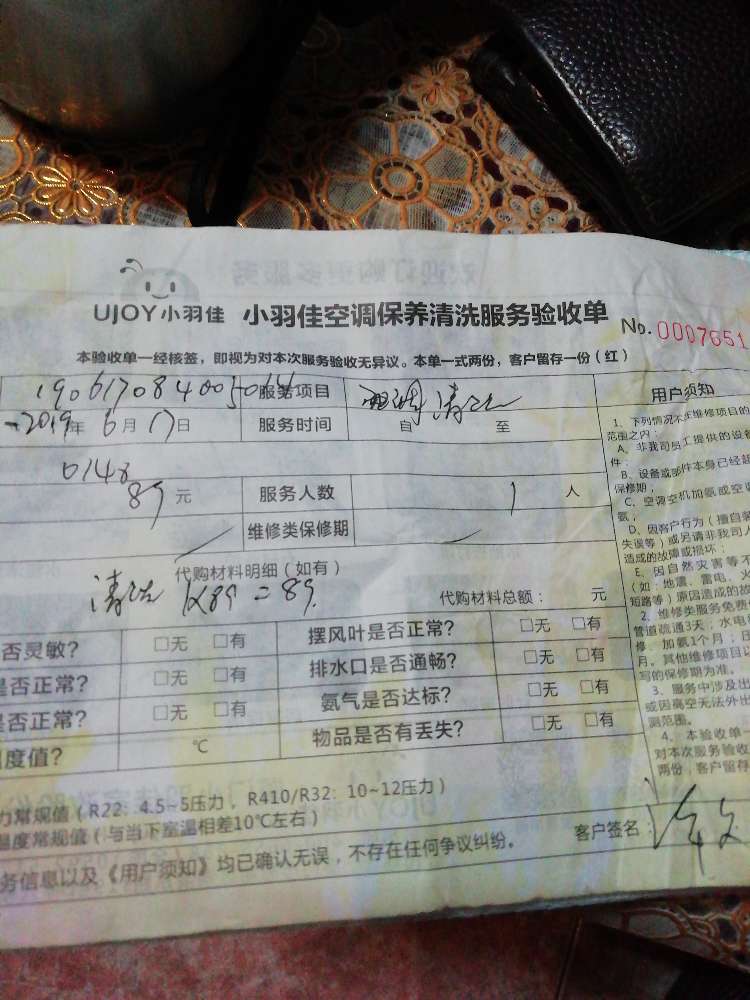 UJOY小羽佳 小羽佳空调保养清洗服务验收单 No. 0007651
本验收单一经核签，即视为对本次服务验收无异议。本单一式两份，客户留存一份（红）
服务项目 清洗
2019年 6月 17日 服务时间 自 至
0148
89 元 服务人数 1 人
维修类保修期
代购材料明细（如有）
清洗 1×89=89. 代购材料总额： 元
否灵敏? □无 □有 摆风叶是否正常? □无 □有
是否正常? □无 □有 排水口是否通畅? □无 □有
是否正常? □无 □有 氨气是否达标? □无 □有
度值? ℃ 物品是否有丢失? □无 □有
力常规值（R22：4.5~5压力，R410/R32：10~12压力）
温度常规值（与当下室温相差10℃左右）
务信息以及《用户须知》均已确认无误，不存在任何争议纠纷。 客户签名：
用户须知
1、下列情况不在维修项目的
范围之内：
A、非我司员工提供的设备
件；
B、设备或部件本身已经超
保修期；
C、空调空机加氨或空调
氨；
D、因客户行为（擅自装
失误等）或另请非我司人
造成的故障或损坏；
E、因自然灾害等不
（如：地震、雷电、火
短路等）原因造成的故
2、维修类服务免费
管道疏通3天；水电
修、加氨1个月；
月。其他维修项目以
写的保修期为准。
3、服务中涉及出
或因高空无法外出
测范围。
4、本验收单一
对本次服务验收
两份，客户留存